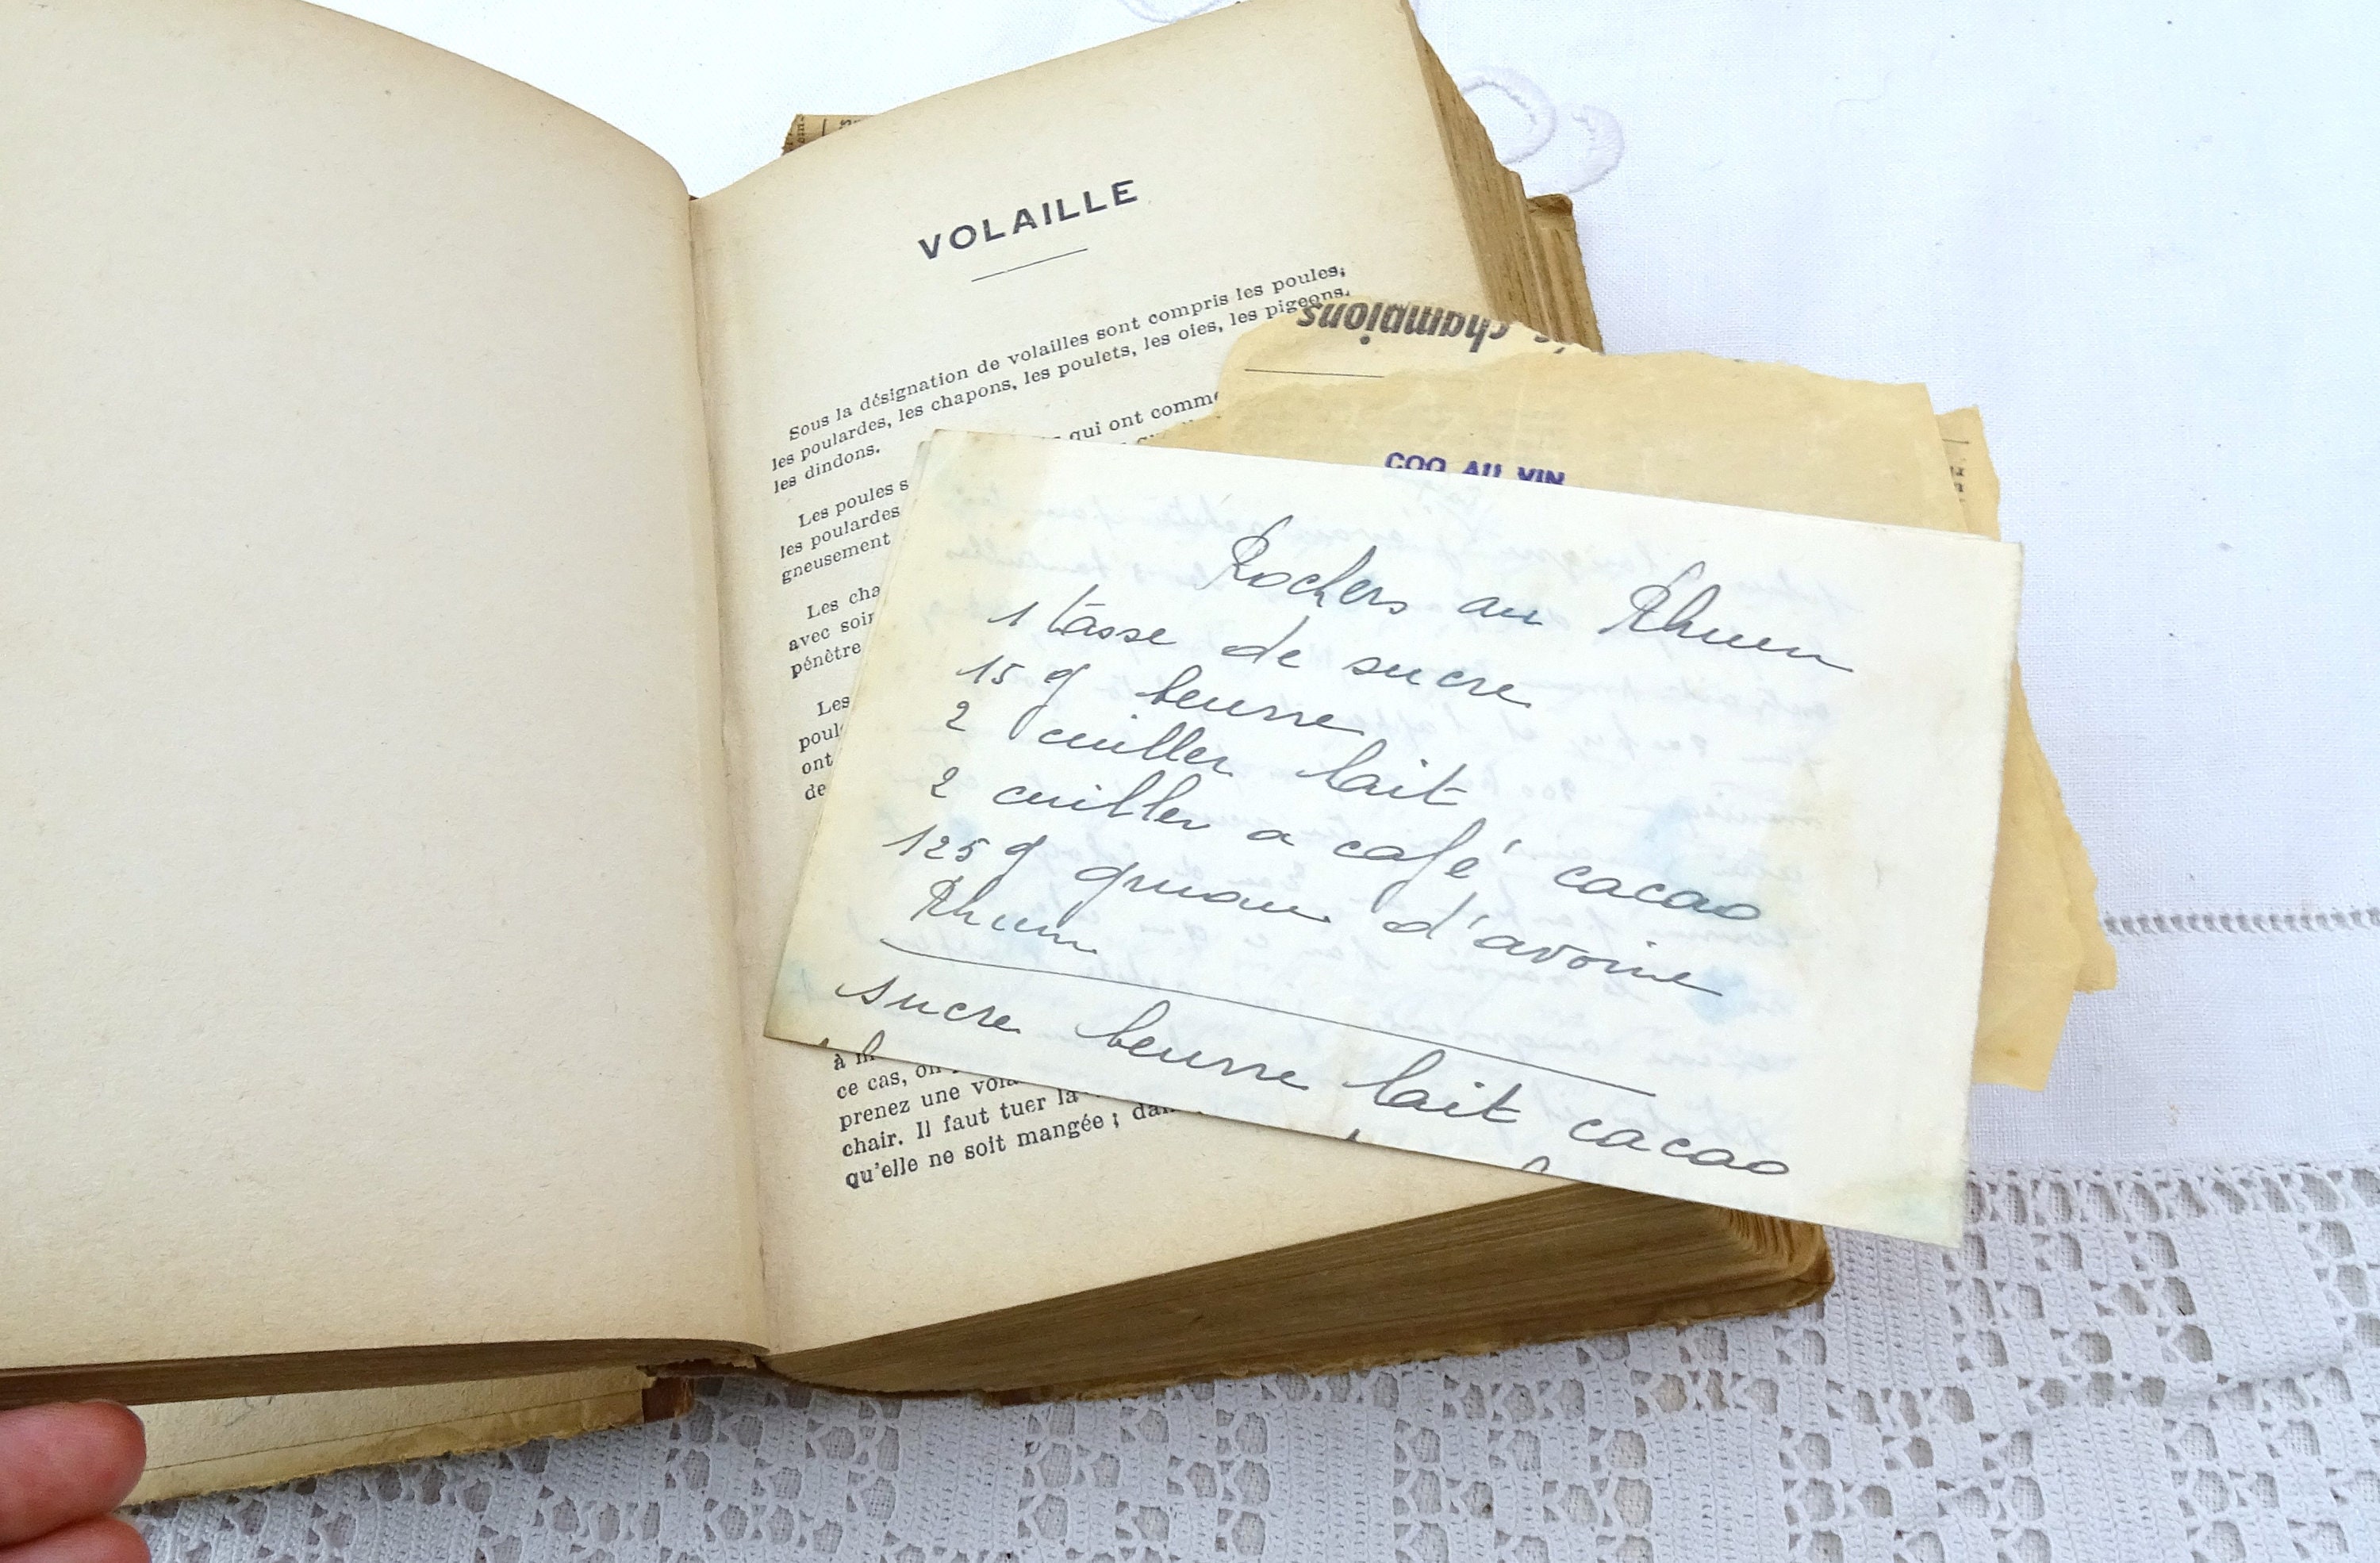 VOLAILLE
Sous la désignation de volailles sont compris les poules,
les poulardes, les chapons, les poulets, les oies, les pigeons,
les dindons.
qui ont comme
Les poules s
les poulardes
gneusement
Les cha
avec soin
pénètre
Les
poul
ont
de
à m
ce cas, on
prenez une vola
chair. Il faut tuer la
qu'elle ne soit mangée ; dan
champions
COQ AU VIN
Rochers au Rhum
1 tasse de sucre
15 g beurre
2 cuiller lait
2 cuiller a café cacao
125 g gruau d'avoine
Rhum
sucre beurre lait cacao